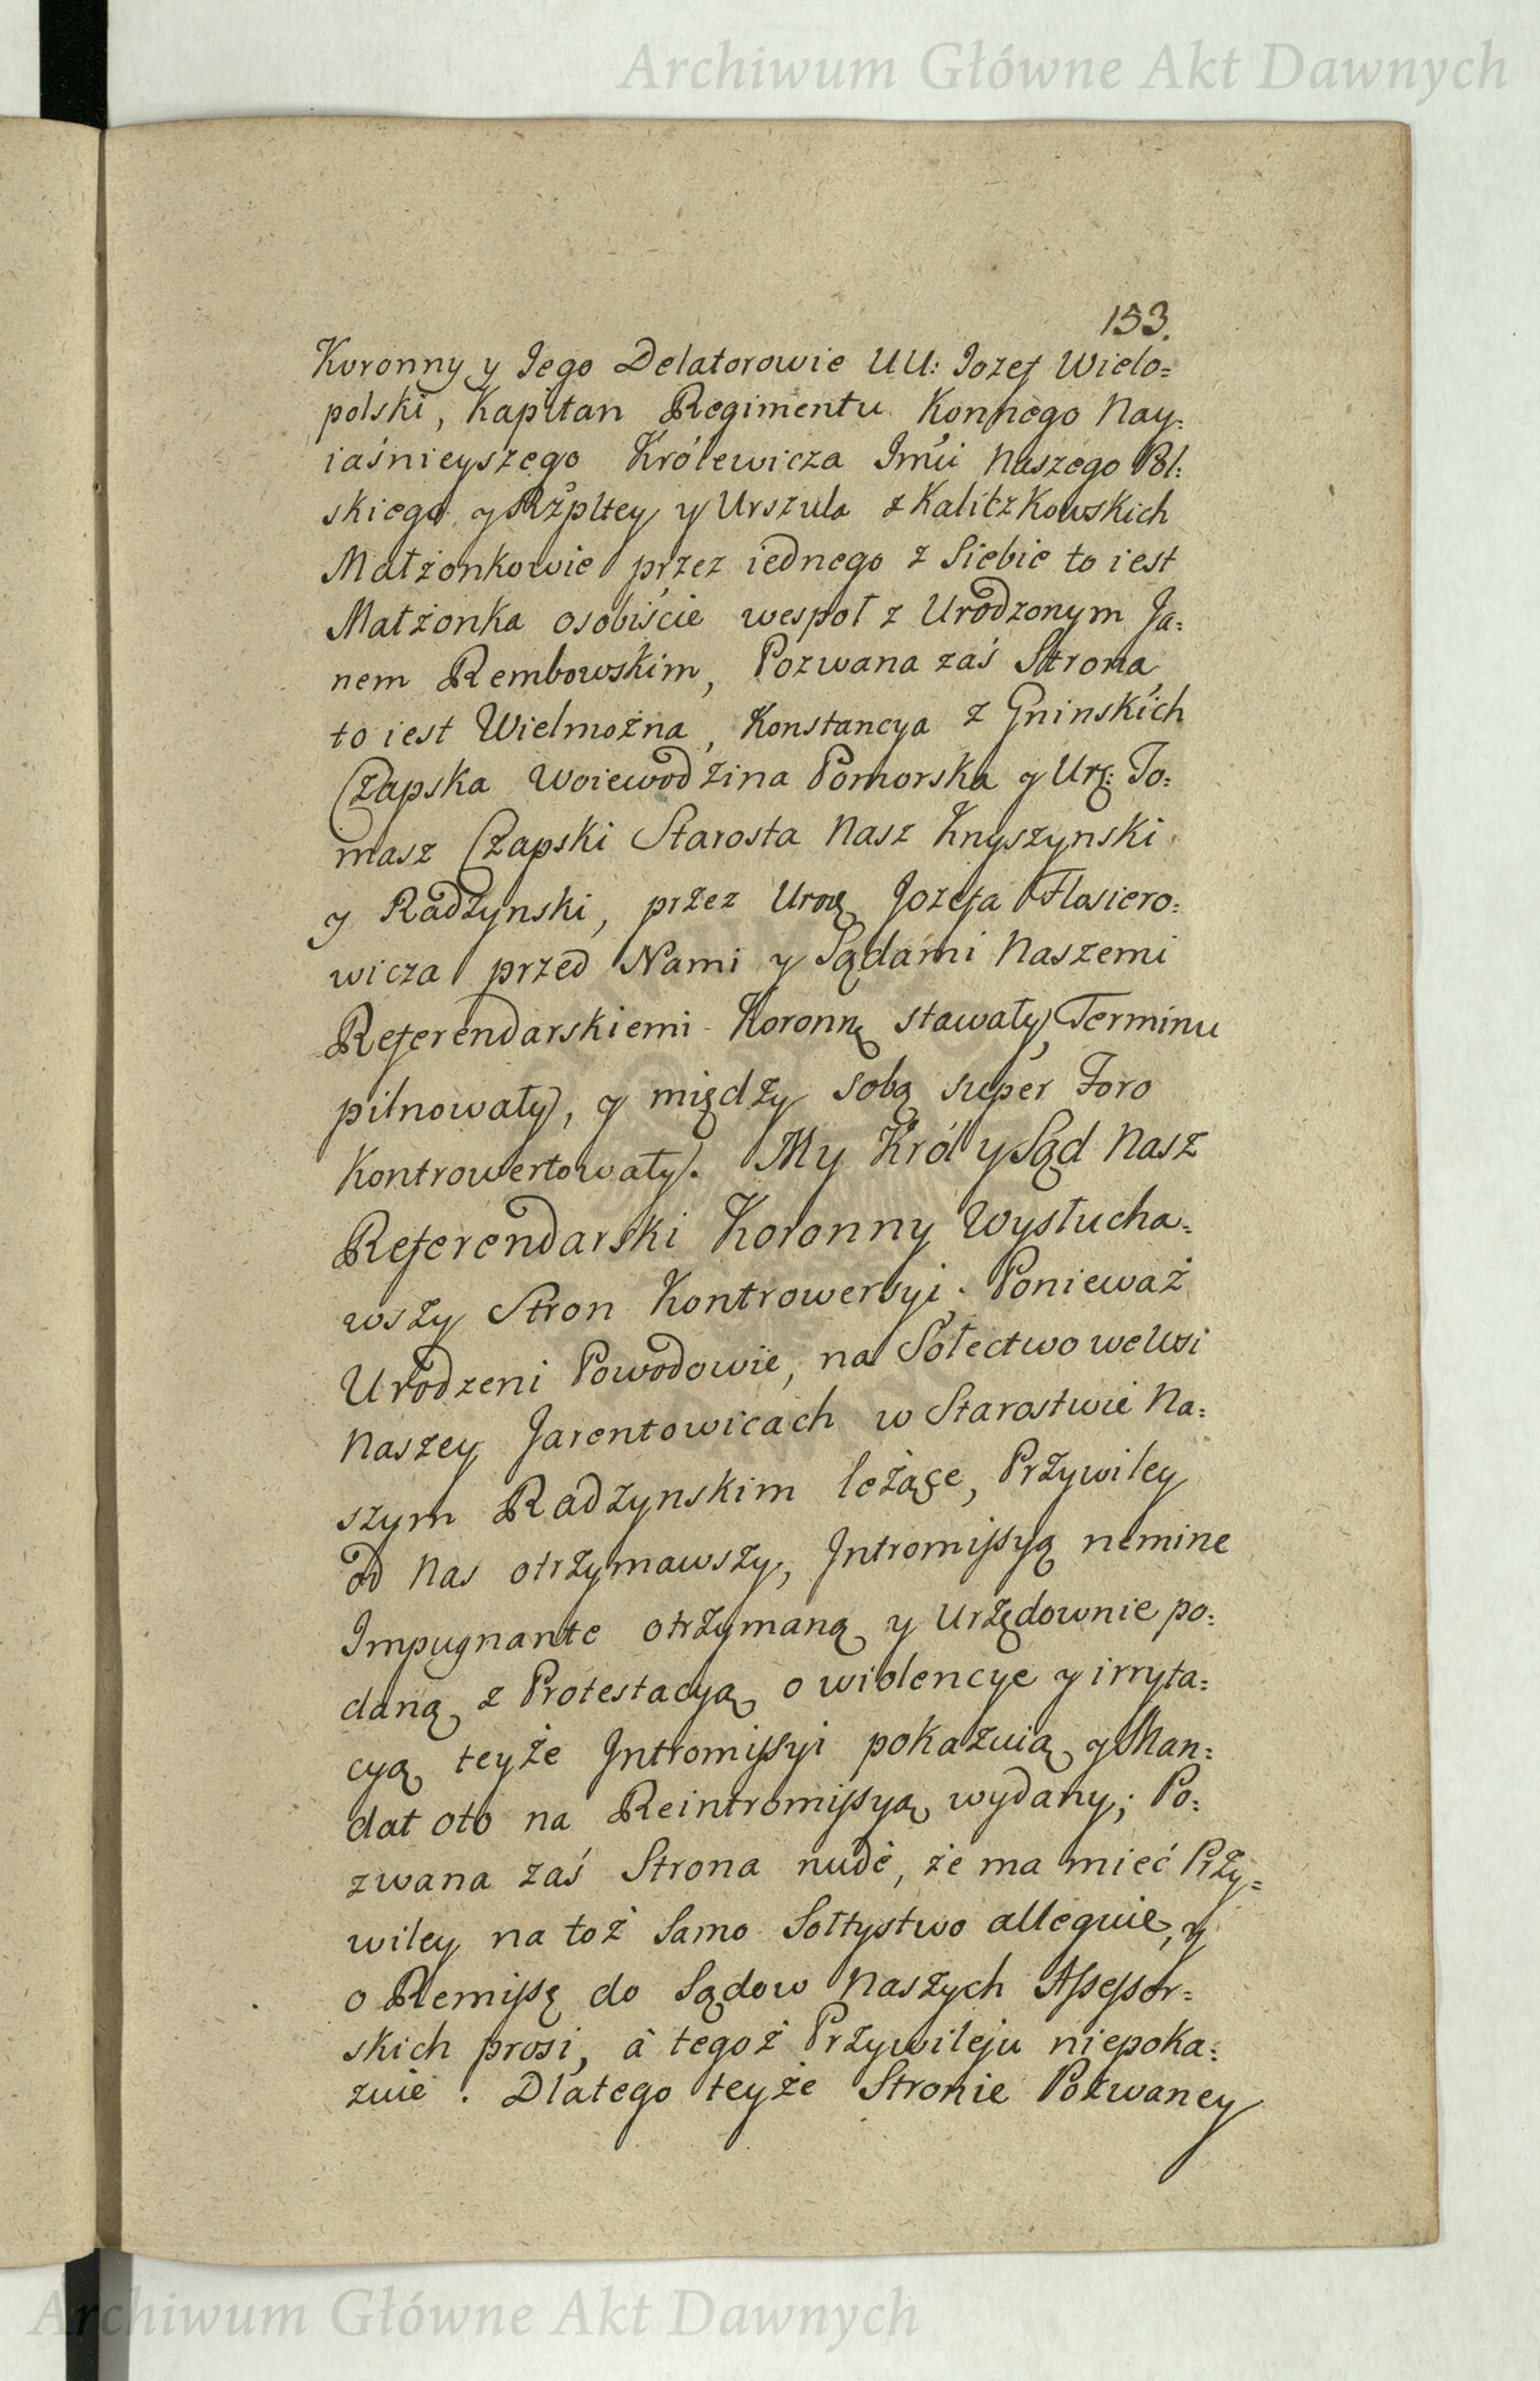 Archiwum Główne Akt Dawnych
153.
Koronny y Jego Delatorowie UU: Jozef Wielo=
polski, Kapitan Regimentu Konnego Nay=
iaśnieyszego Królewicza Jmći Naszego Pol=
skiego y Rzpltey y Urszula z Kalitzkowskich
Małżonkowie przez iednego z Siebie to iest
Małżonka osobiście wespoł z Urodzonym Ja=
nem Rembowskim, Pozwana zaś Strona
to iest Wielmożna, Konstancya z Gninskich
Czapska Woiewodzina Pomorska y Urz: To=
masz Czapski Starosta Nasz Knyszynski
y Radzynski, przez Urox Jozefa Flosiero=
wicza przed Nami y Sądami Naszemi
Referendarskiemi Koronn stawały, Terminu
pilnowały, y między sobą super Foro
Kontrowertowały. My Król y Sąd Nasz
Referendarski Koronny Wysłucha=
wszy Stron Kontrowersyi. Ponieważ
Urodzeni Powodowie, na Sołectwo we Wsi
Naszey Jarentowicach w Starostwie Na=
szym Radzynskim leżące, Przywiley
od Nas otrzymawszy, Jntromissyą nemine
Impugnante otrzymaną y Urzędownie po=
daną z Protestacyą o wiolencye y irryta=
cyą teyże Jntromissyi pokazuią y Man=
dat oto na Reintromissyą wydany; Po=
zwana zaś Strona nudè, że ma mieć Przy=
wiley na toż Samo Sołtystwo alleguie, y
o Remissę do Sądow Naszych Assessor=
skich prosi, à tegoż Przywileju niepoka=
zuie. Dlatego teyże Stronie Pozwaney
Archiwum Główne Akt Dawnych